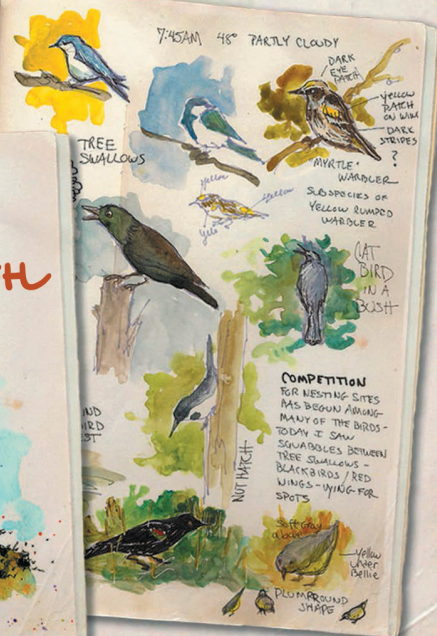 7:45AM 48° PARTLY CLOUDY
DARK
EYE
PATCH
YELLOW
PATCH
ON WING
DARK
STRIPES
?
TREE
SWALLOWS
MYRTLE
WARBLER
SUBSPECIES OF
YELLOW RUMPED
WARBLER
Yellow
Yellow
CAT
BIRD
IN A
BUSH
COMPETITION
FOR NESTING SITES
HAS BEGUN AMONG
MANY OF THE BIRDS -
TODAY I SAW
SQUABBLES BETWEEN
TREE SWALLOWS -
BLACKBIRDS / RED
WINGS - VYING FOR
SPOTS
NUT HATCH
Soft Gray
above
Yellow
under
Bellie
PLUMP ROUND
SHAPE